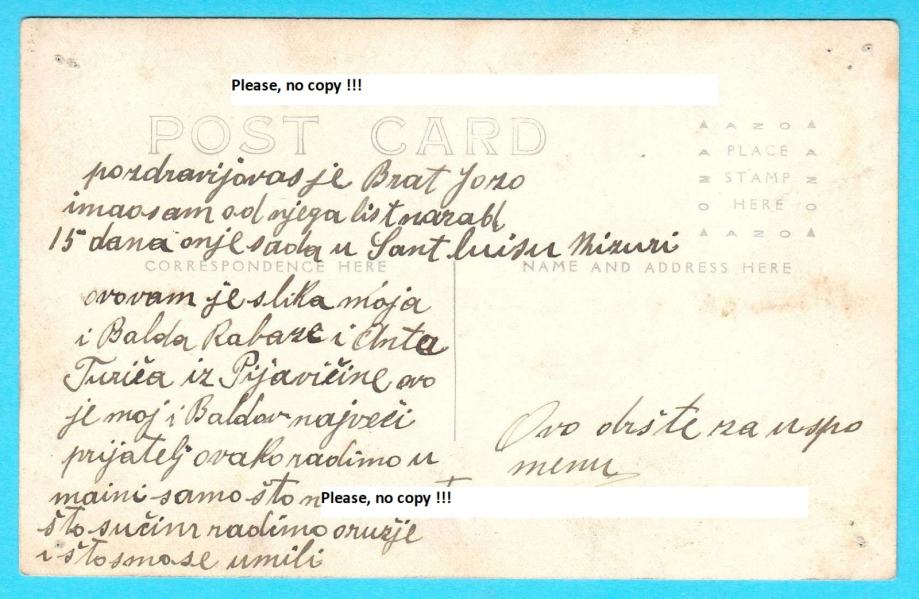 Please, no copy !!!
POST CARD
AZO
PLACE
STAMP
HERE
AZO
pozdravijovas je Brat Jozo
imaosam od njega list nazad
15 dana onje sada u Sant Luisu Mizuri
CORRESPONDENCE HERE
NAME AND ADDRESS HERE
ovovam je slika moja
i Balda Rabaze i Anta
Turiča iz Pijavičine ovo
je moj i Baldov največi
prijatelj ovako radimo u
maini samo što
Please, no copy !!!
što sučim radimo oružje
i štosmose umili
Ovo držte za uspo
menu